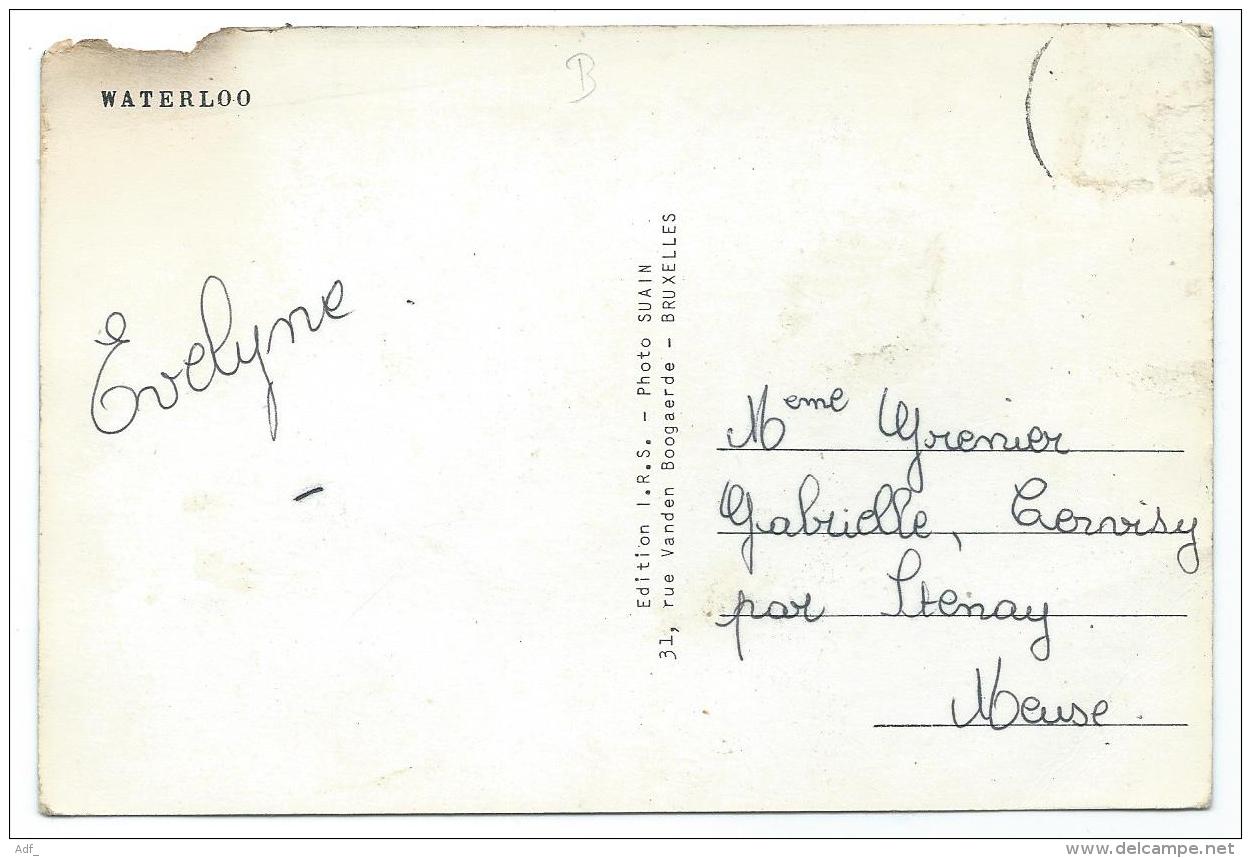 WATERLOO
B
Evelyne
Edition I.R.S. – Photo SUAIN
31, rue Vanden Boogaerde – BRUXELLES
Meme Grenier
Gabrielle, Cervisy
par Stenay
Meuse.
Adf_
www.delcampe.net